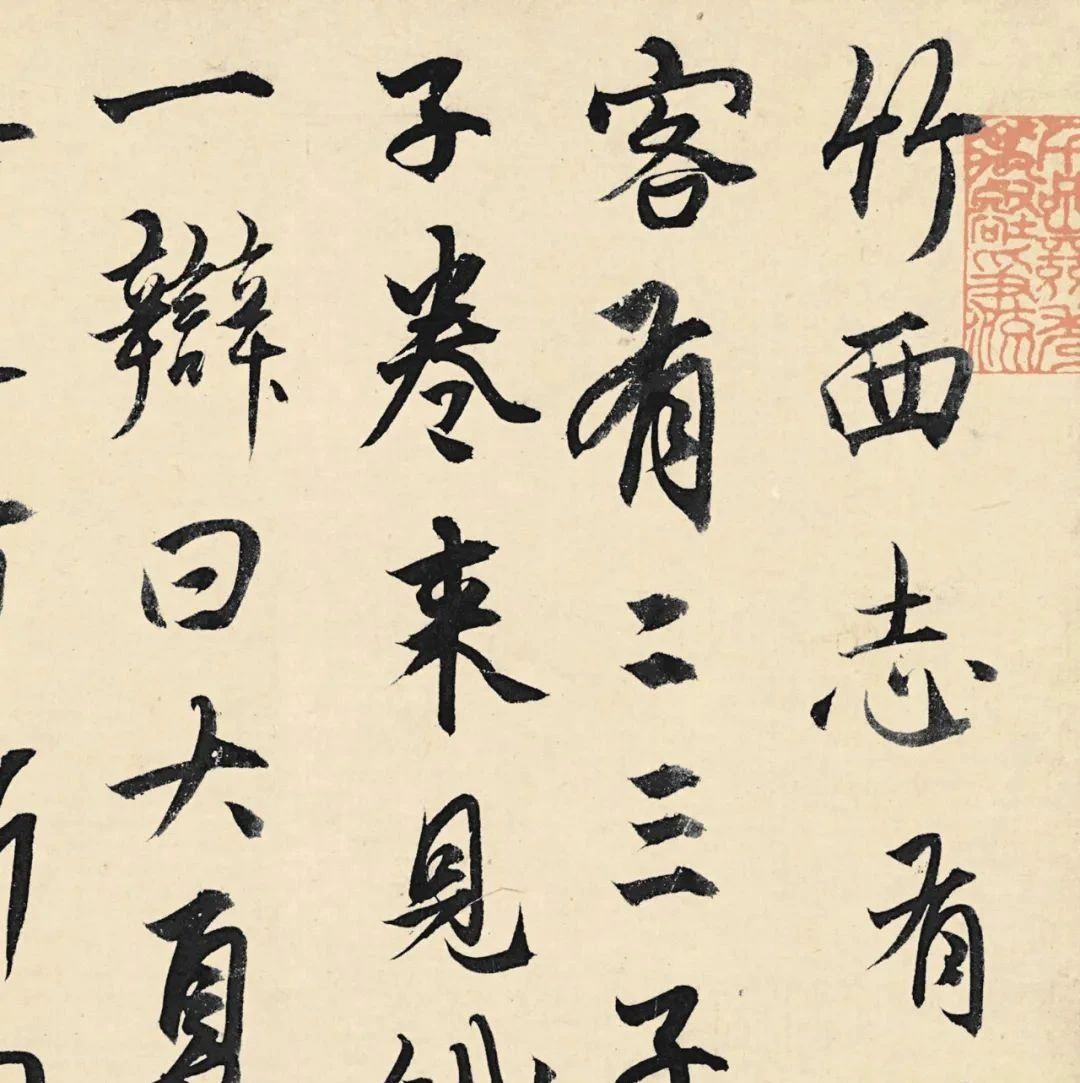 竹西志有
客有二三子
子卷来見
一辯曰大夏